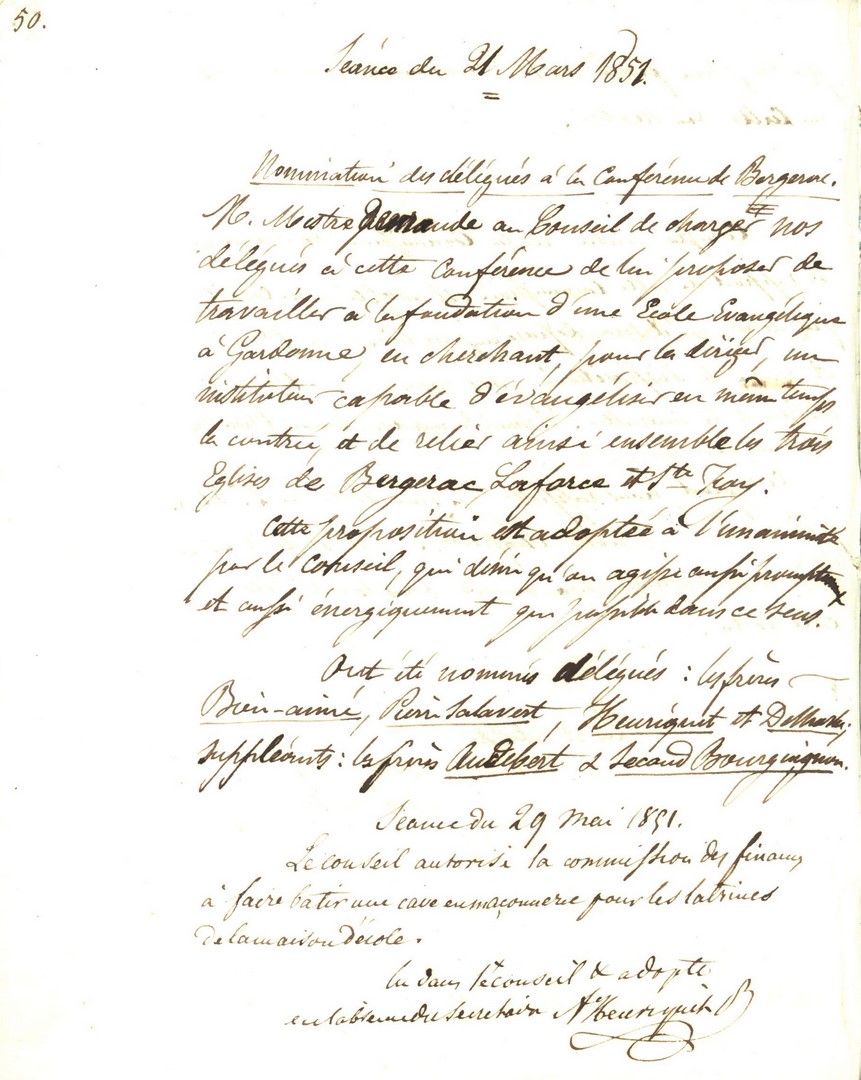 50.
Séance du 21 Mars 1851.
Nomination des délégués à la Conférence de Bergerac.
M. Mestre demande au Conseil de charger nos
délégués à cette Conférence de lui proposer de
travailler à la fondation d'une Ecole Evangélique
à Gardonne, en cherchant, pour la diriger, un
instituteur capable d'évangéliser en même temps
la contrée, et de relier ainsi ensemble les trois
Eglises de Bergerac, Laforce et Ste Foy.
Cette proposition est adoptée à l'unanimité
par le Conseil, qui désire qu'on agisse aussi promptem
et aussi énergiquement que possible dans ce sens.
Ont été nommés délégués : les frères
Bien-aimé, Pierre Salavert, Heuriquet et
suppléants : les frères Audebert & Second Bourguignon.
Séance du 29 mai 1851.
Le conseil autorise la commission des finances
à faire batir une cave en maçonnerie pour les latrines
de la maison d'école.
lu dans le conseil & adopté
en l'absence du Secretaire Heuriquet